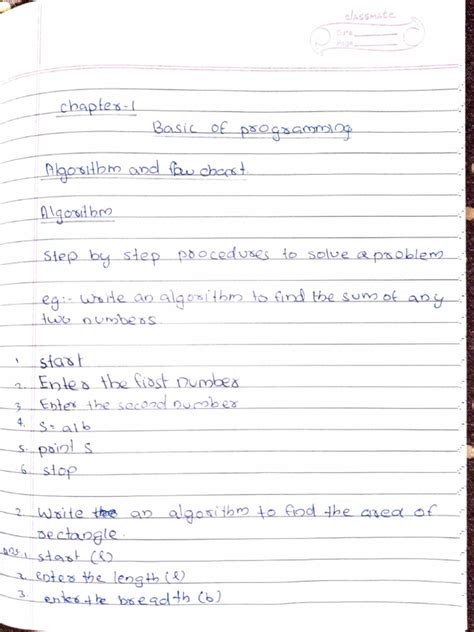 classmate
Date
Page
Chapter-1
Basic of programming
Algorithm and flow chart
Algorithm
Step by step procedures to solve a problem
eg:- Write an algorithm to find the sum of any
two numbers
1. start
2. Enter the first number
3. Enter the second number
4. S = a+b
5. print S
6. stop
2. Write an algorithm to find the area of
rectangle.
1. start (l)
2. enter the length (l)
3. enter the breadth (b)